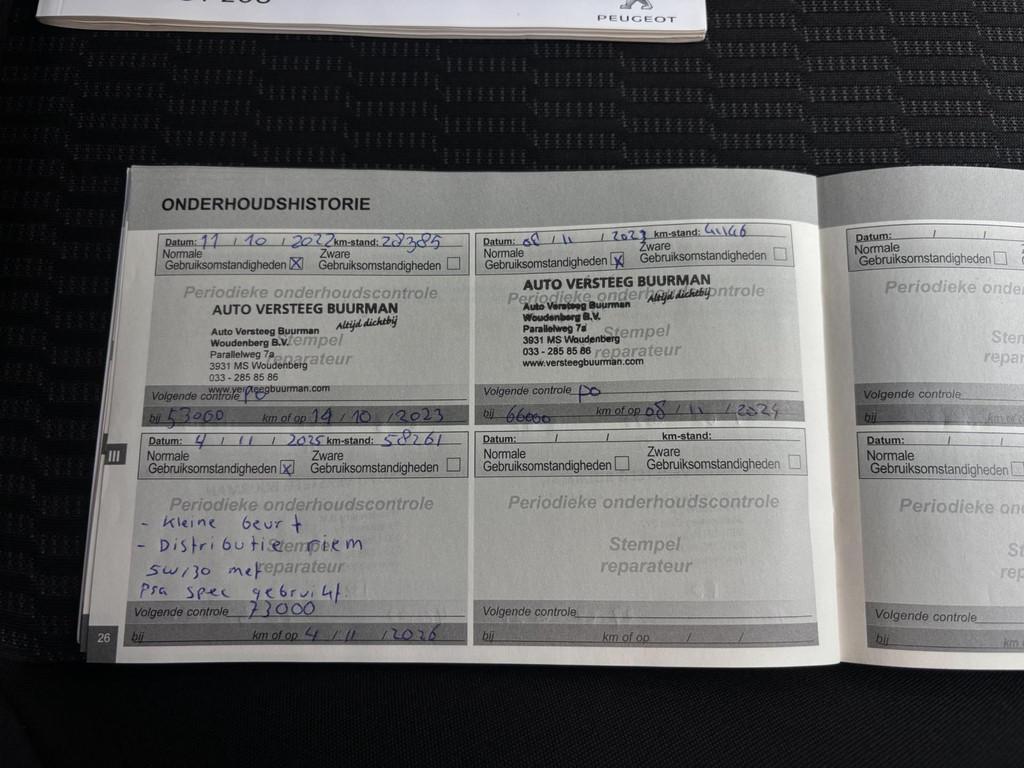 PEUGEOT
ONDERHOUDSHISTORIE
Datum: 11 / 10 / 2022 km-stand: 28385
Normale Gebruiksomstandigheden X Zware Gebruiksomstandigheden
Periodieke onderhoudscontrole
AUTO VERSTEEG BUURMAN
Altijd dichtbij
Auto Versteeg Buurman
Woudenberg B.V.
Stempel
Parallelweg 7a
reparateur
3931 MS Woudenberg
033 - 285 85 86
www.versteegbuurman.com
Volgende controle PO
bij 53060 km of op 14 / 10 / 2023
Datum: 08 / 11 / 2023 km-stand: 41146
Normale Gebruiksomstandigheden X Zware Gebruiksomstandigheden
AUTO VERSTEEG BUURMAN
Periodieke onderhoudscontrole
Altijd dichtbij
Auto Versteeg Buurman
Woudenberg B.V.
Parallelweg 7a
Stempel
3931 MS Woudenberg
033 - 285 85 86
reparateur
www.versteegbuurman.com
Volgende controle PO
bij 66000 km of op 08 / 11 / 2024
Datum: 4 / 11 / 2025 km-stand: 58261
Normale Gebruiksomstandigheden X Zware Gebruiksomstandigheden
Periodieke onderhoudscontrole
- Kleine beurt
- Distributie riem
Stempel
5w/30 met
reparateur
Psa spec gebruikt
Volgende controle 73000
bij km of op 4 / 11 / 2026
Datum: / / km-stand:
Normale Gebruiksomstandigheden Zware Gebruiksomstandigheden
Periodieke onderhoudscontrole
Stempel
reparateur
Volgende controle
bij km of op / /
Datum: / /
Normale
Gebruiksomstandigheden
Periodieke
Volgende controle
bij
Datum: / /
Normale
Gebruiksomstandigheden
Periodieke
Volgende controle
bij km
III
26